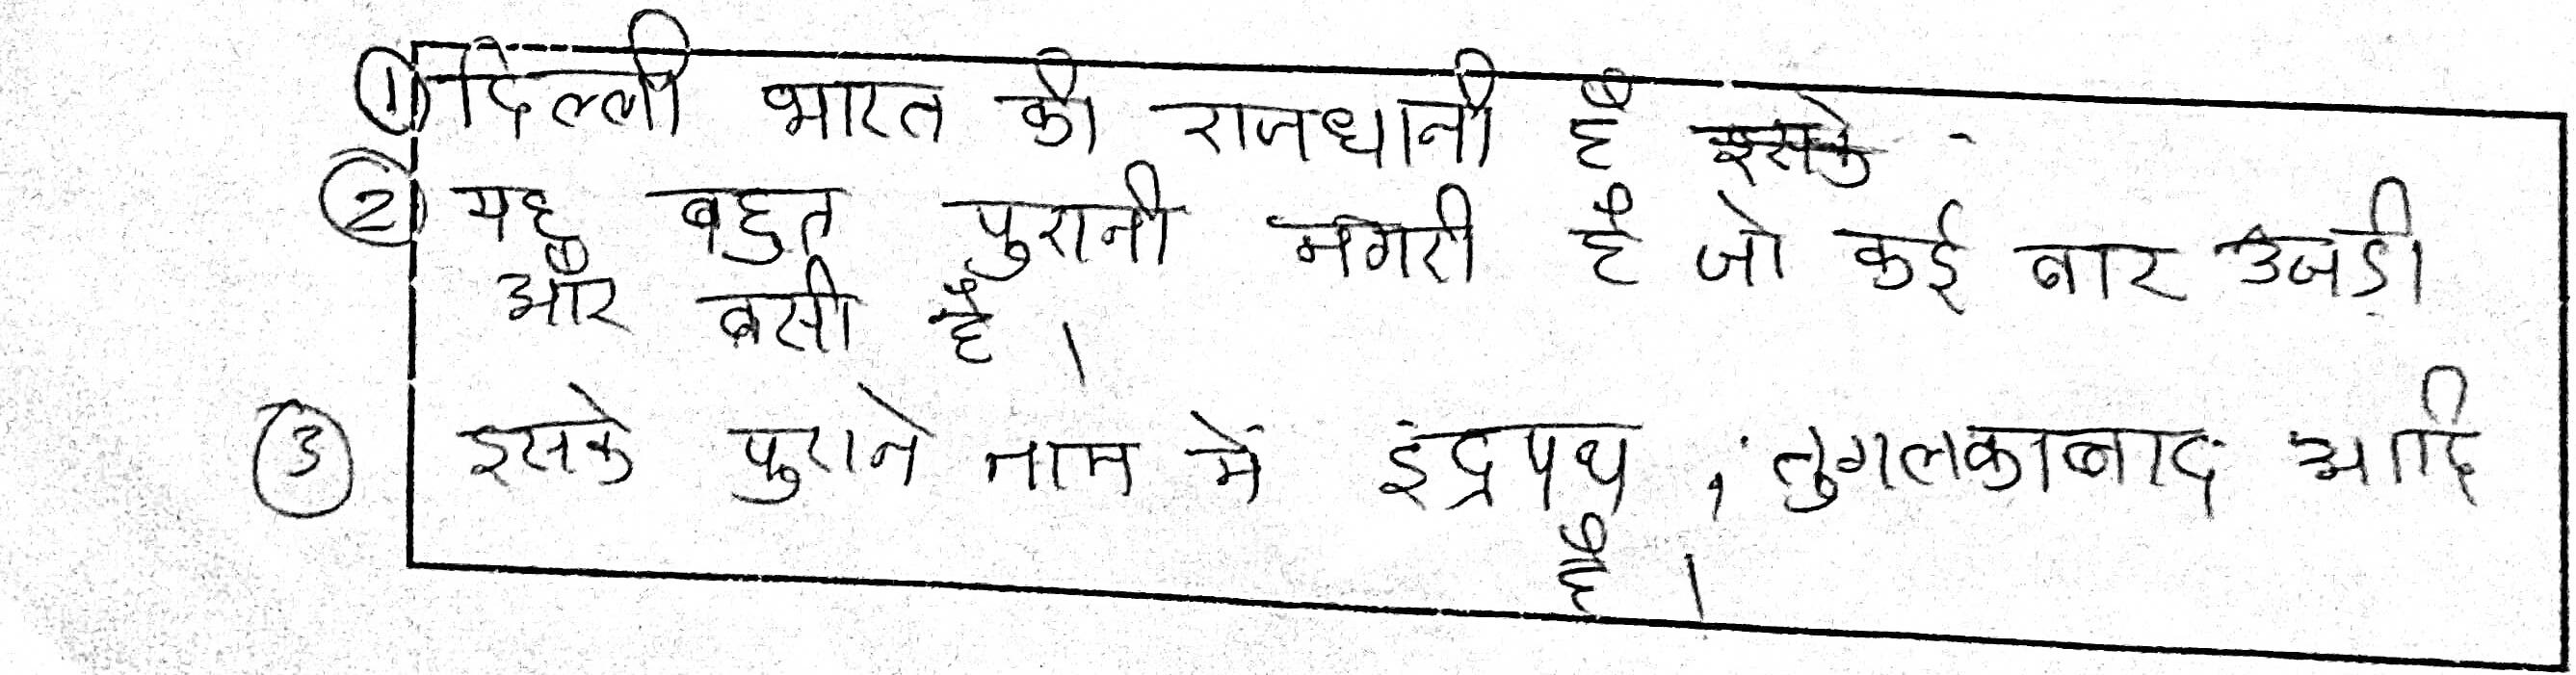 ① दिल्ली भारत की राजधानी है इसके
② यह बहुत पुरानी नगरी है जो कई बार उजड़ी
और बसी है ।
③ इसके पुराने नाम में इंद्रपथ , तुगलकाबाद आदि
है ।